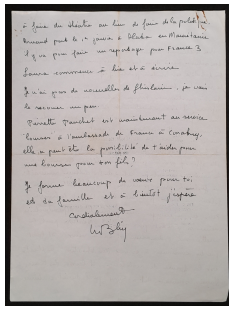 à faire du théâtre au lieu de faire de la politique
part le 1er janvier à en Mauritanie
pour faire un reportage pour France 3
Laura commence à lire et à écrire
Je n'ai pas de nouvelles de Ghislain, je vais
le un peu
est maintenant au service
bourses à l'ambassade de France à Conakry,
elle a peut être la possibilité de t'aider pour
une bourse pour ton fils ?
Je forme beaucoup de vœux pour toi
et ta famille et à bientôt j'espère
Cordialement